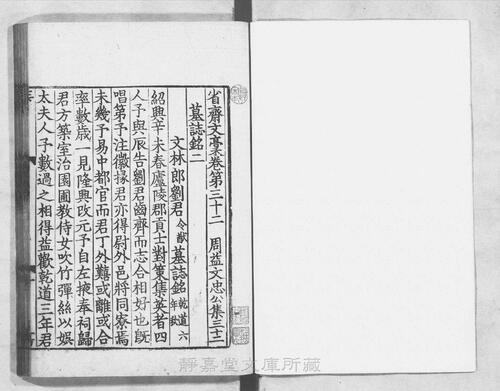 省齋文藁卷第三十二　周益文忠公集三十二
墓誌銘二
文林郎劉君令猷墓誌銘乾道六年
紹興辛未春廬陵郡貢士對策集英者四
人予與辰告劉君齒齊而志合相好也旣
唱第予注徽掾君亦得尉外邑將同寮焉
未幾予易中都官而君丁外艱或離或合
率數歲一見隆興改元予自左掖奉祠歸
君方築室治園圃教侍女吹竹彈絲以娛
太夫人予數過之相得益歡乾道三年君
靜嘉堂文庫所藏